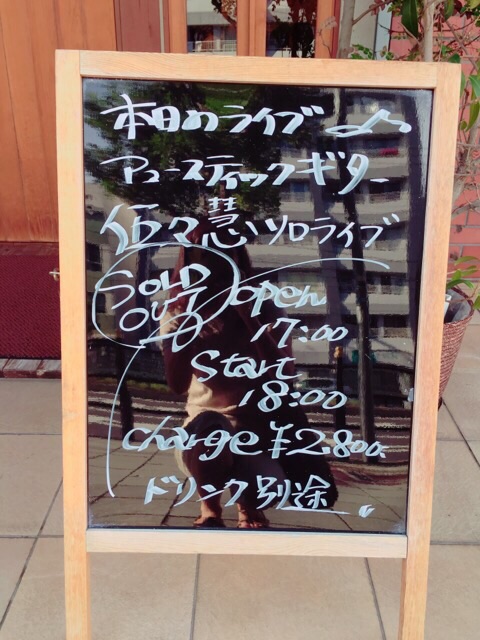 本日のライブ♪
アコースティックギター
伍々慧ソロライブ
SOLD
OUT
open
17:00
Start
18:00
charge ¥2.800.
ドリンク別途